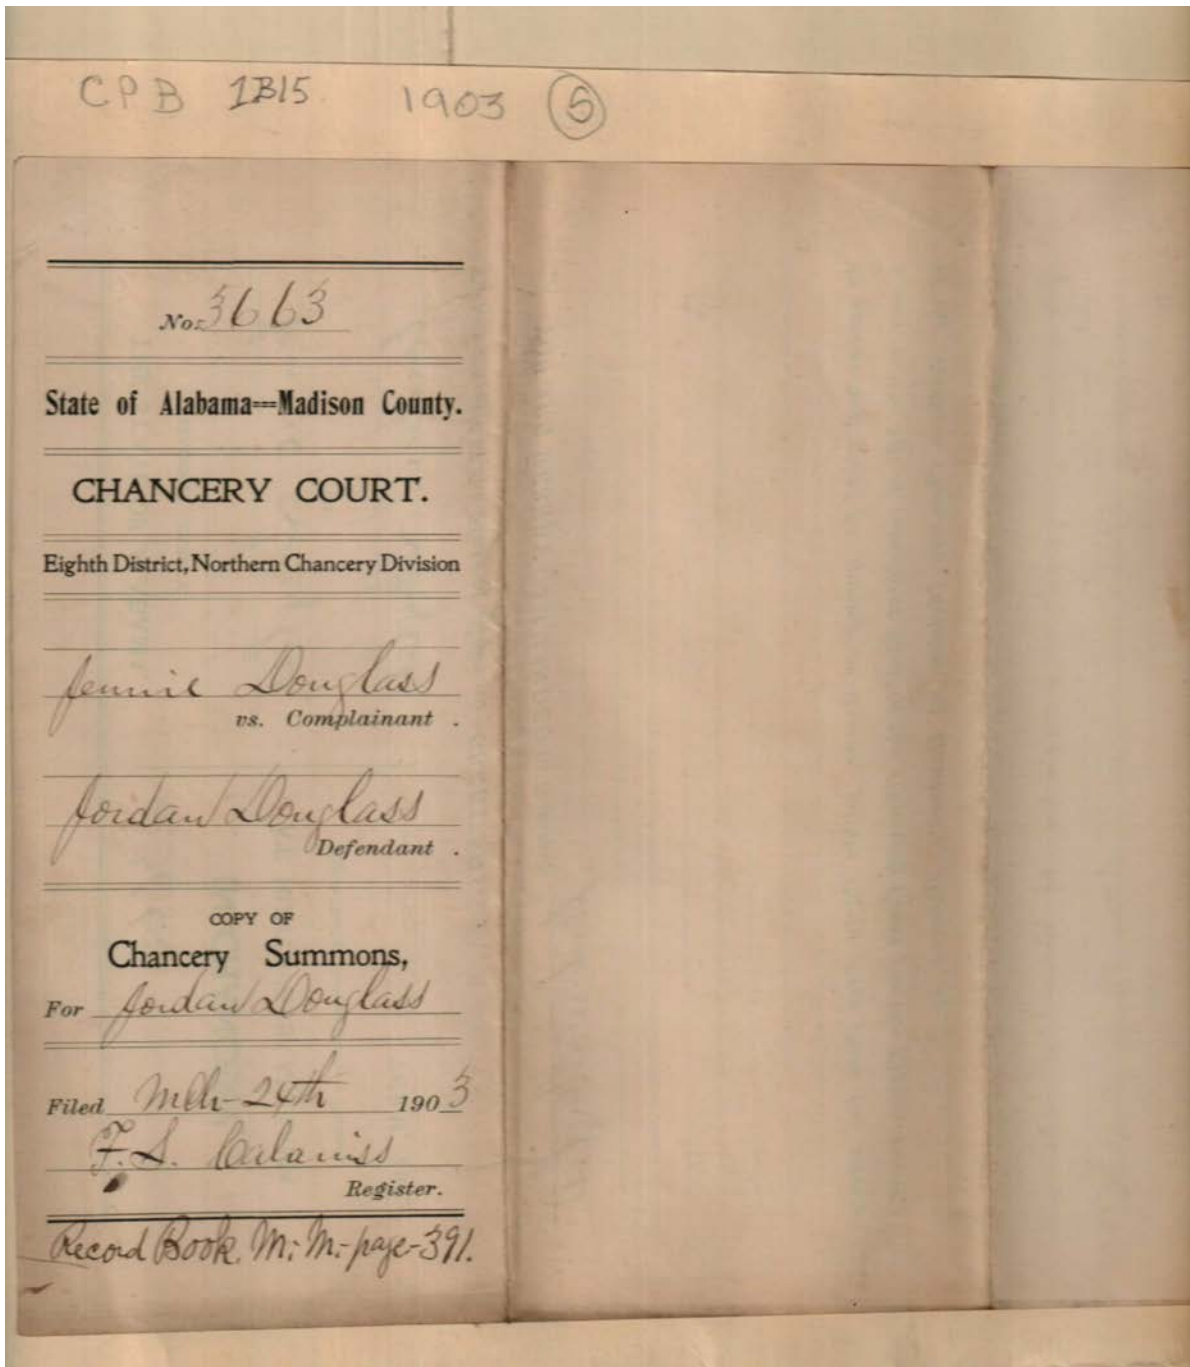 CPB 1B15 1903 5
No. 3663
State of Alabama==Madison County.
CHANCERY COURT.
Eighth District, Northern Chancery Division
Jennie Douglass
vs. Complainant .
Jordan Douglass
Defendant .
COPY OF
Chancery Summons,
For Jordan Douglass
Filed Mch-24th 1903
F.S. Calaniss
Register.
Record Book. M. M. page-391.